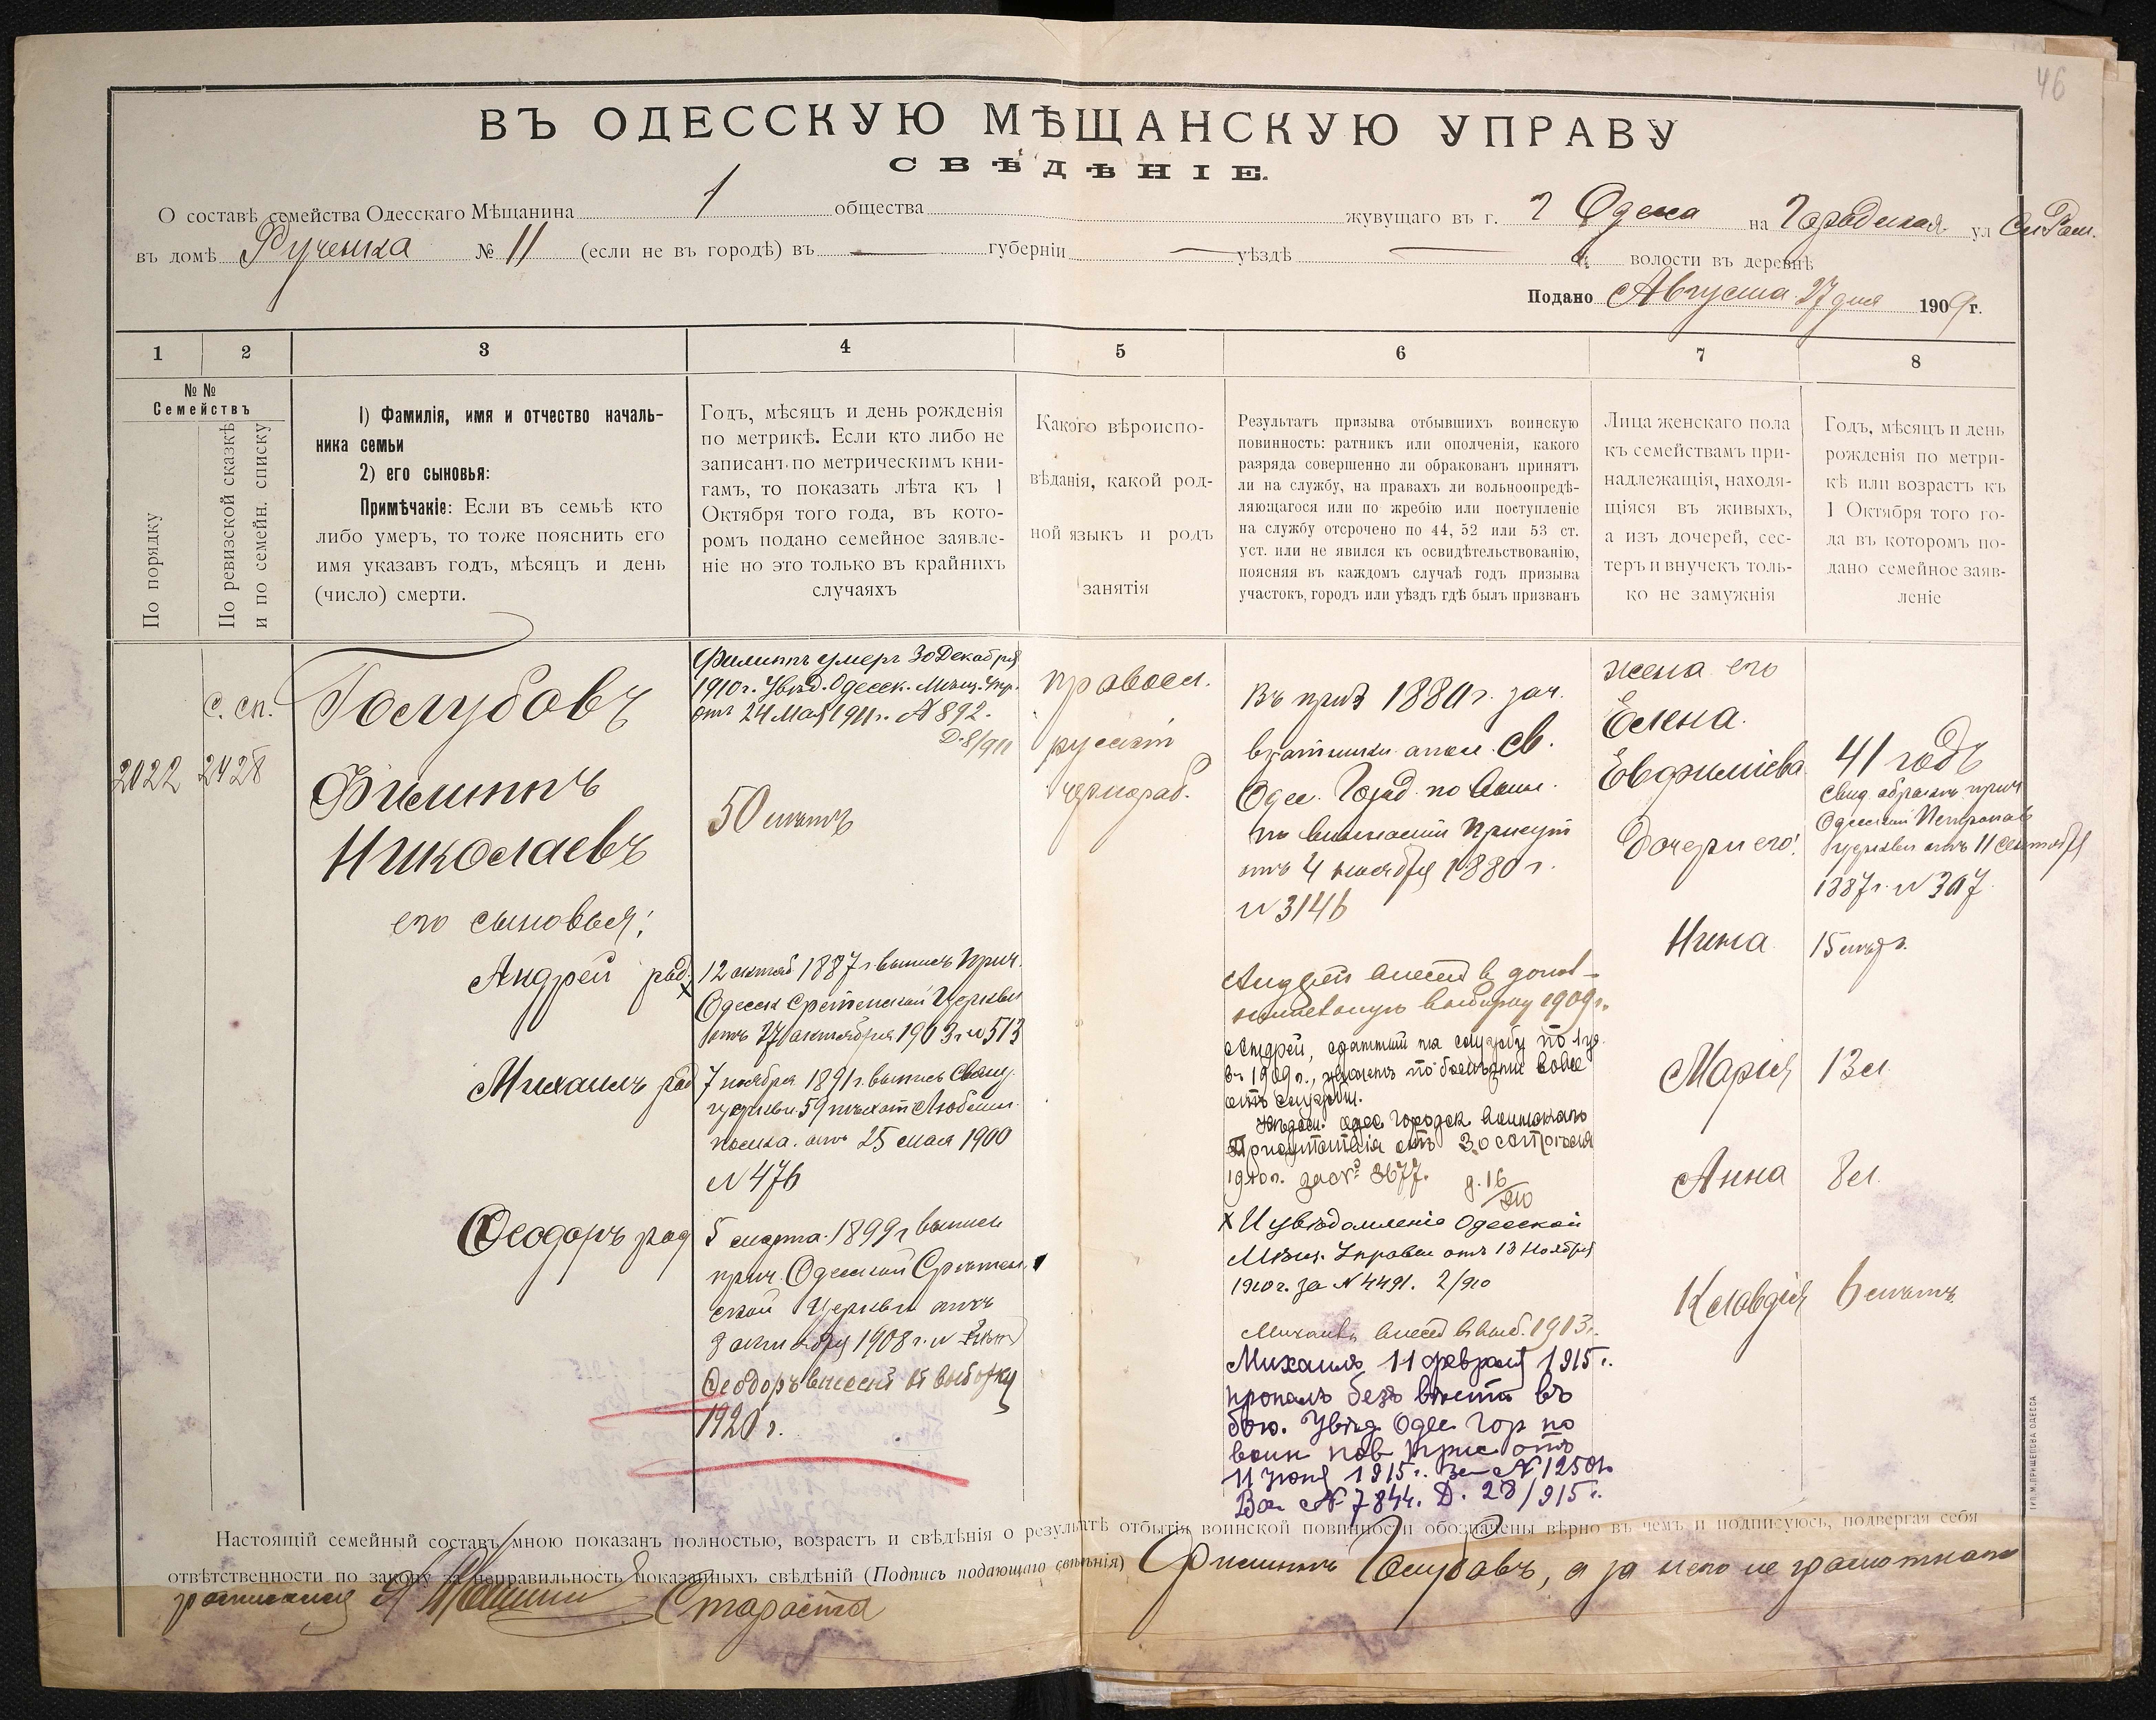 46
ВЪ ОДЕССКУЮ МѢЩАНСКУЮ УПРАВУ
СВѢДѢНІЕ.
О составѣ семейства Одесскаго Мѣщанина 1 общества живущаго въ г. Одесса на Городская ул
въ домѣ Рученка № 11 (если не въ городѣ) въ губерніи уѣздѣ волости въ деревнѣ
Подано Августа 27 дня 1909 г.
1 2 3 4 5 6 7 8
№№
Семействъ
По порядку
По ревизской сказкѣ
и по семейн. списку
1) Фамилія, имя и отчество началь-
ника семьи
2) его сыновья:
Примѣчакіе: Если въ семьѣ кто
либо умеръ, то тоже пояснить его
имя указавъ годъ, мѣсяцъ и день
(число) смерти.
Годъ, мѣсяцъ и день рожденія
по метрикѣ. Если кто либо не
записанъ по метрическимъ кни-
гамъ, то показать лѣта къ 1
Октября того года, въ кото-
ромъ подано семейное заявле-
ніе но это только въ крайнихъ
случаяхъ
Какого вѣроиспо-
вѣданія, какой род-
ной языкъ и родъ
занятія
Результатъ призыва отбывшихъ воинскую
повинность: ратникъ или ополченія, какого
разряда совершенно ли обракованъ принятъ
ли на службу, на правахъ ли вольноопредѣ-
ляющагося или по жребію или поступленіе
на службу отсрочено по 44, 52 или 53 ст.
уст. или не явился къ освидѣтельствованію,
поясняя въ каждомъ случаѣ годъ призыва
участокъ, городъ или уѣздъ гдѣ былъ призванъ
Лица женскаго пола
къ семействамъ при-
надлежащія, находя-
щіяся въ живыхъ,
а изъ дочерей, сес-
теръ и внучекъ толь-
ко не замужнія
Годъ, мѣсяцъ и день
рожденія по метри-
кѣ или возрастъ къ
1 Октября того го-
да въ которомъ по-
дано семейное заяв-
леніе
с. сп.
2022 2428
Голубовъ
Филиппъ
Николаевъ
его сыновья:
Андрей род.
Михаилъ род
Ѳеодоръ род
Филиппъ умеръ 30 Декабря
1910 г. Увѣд. Одесск. Мѣщ. Упр.
отъ 24 Мая 1911 г. № 892.
Д. 8/911
50 лѣтъ
12 октяб. 1887 г. выпись прич.
Одесск Срѣтенской Церкви
отъ 27 октября 1903 г. № 513
7 ноября 1891 г. выпись Свящ.
церкви 59 пѣхот. Люблин.
полка. отъ 25 мая 1900
№ 476
5 марта 1899 г выпись
прич. Одесской Срѣтен
ской Церкви отъ
1908 г. №
Ѳеодоръ внесенъ въ выборку
1920 г.
православ.
русскій
чернораб.
Въ приз 1880 г. зач.
въ ратники ополч. св.
Одес. Город. по воин.
повинности Присут
отъ 4 ноября 1880 г.
№ 3146
Андрей внесенъ въ допол-
нительную выборку 1909 г.
Андрей, сданный на службу по
въ 1909 г., уволенъ по болѣзни вовсе
отъ службы.
Увѣдом. Одес. Городск. Воинскаго
Присутствія отъ 30 сентября
1910 г. за № 3677. д. 16/910
х И увѣдомленіе Одесской
Мѣщ. Управы отъ 13 Ноября
1910 г. за № 4491. 2/910
Михаилъ внесенъ въ выб. 1913 г.
Михаилъ 11 февраля 1915 г.
пропалъ безъ вѣсти въ
бою. Увѣд. Одес Гор по
воин пов Прис отъ
11 Іюня 1915 г. за № 12501
Вх № 7844. Д. 28/915 г.
жена его
Елена
Евфиміева
Дочери его:
Нина
Марія
Анна
Клавдія
41 годъ
свид. о бракѣ прич
Одесской Петропав
церкви отъ 11 Сентября
1887 г. № 307
15 лѣтъ.
13 л
8 л.
6 лѣтъ.
ТИП. М. ПРИЩЕПОВА ОДЕССА
Настоящій семейный составъ мною показанъ полностью, возрастъ и свѣдѣнія о результатѣ отбытія воинской повинности обозначены вѣрно въ чемъ и подписуюсь, подвергая себя
отвѣтственности по закону за неправильность показанныхъ свѣдѣній (Подпись подающаго свѣдѣнія) Филиппъ Голубовъ, а за него не грамотнаго
росписался Староста